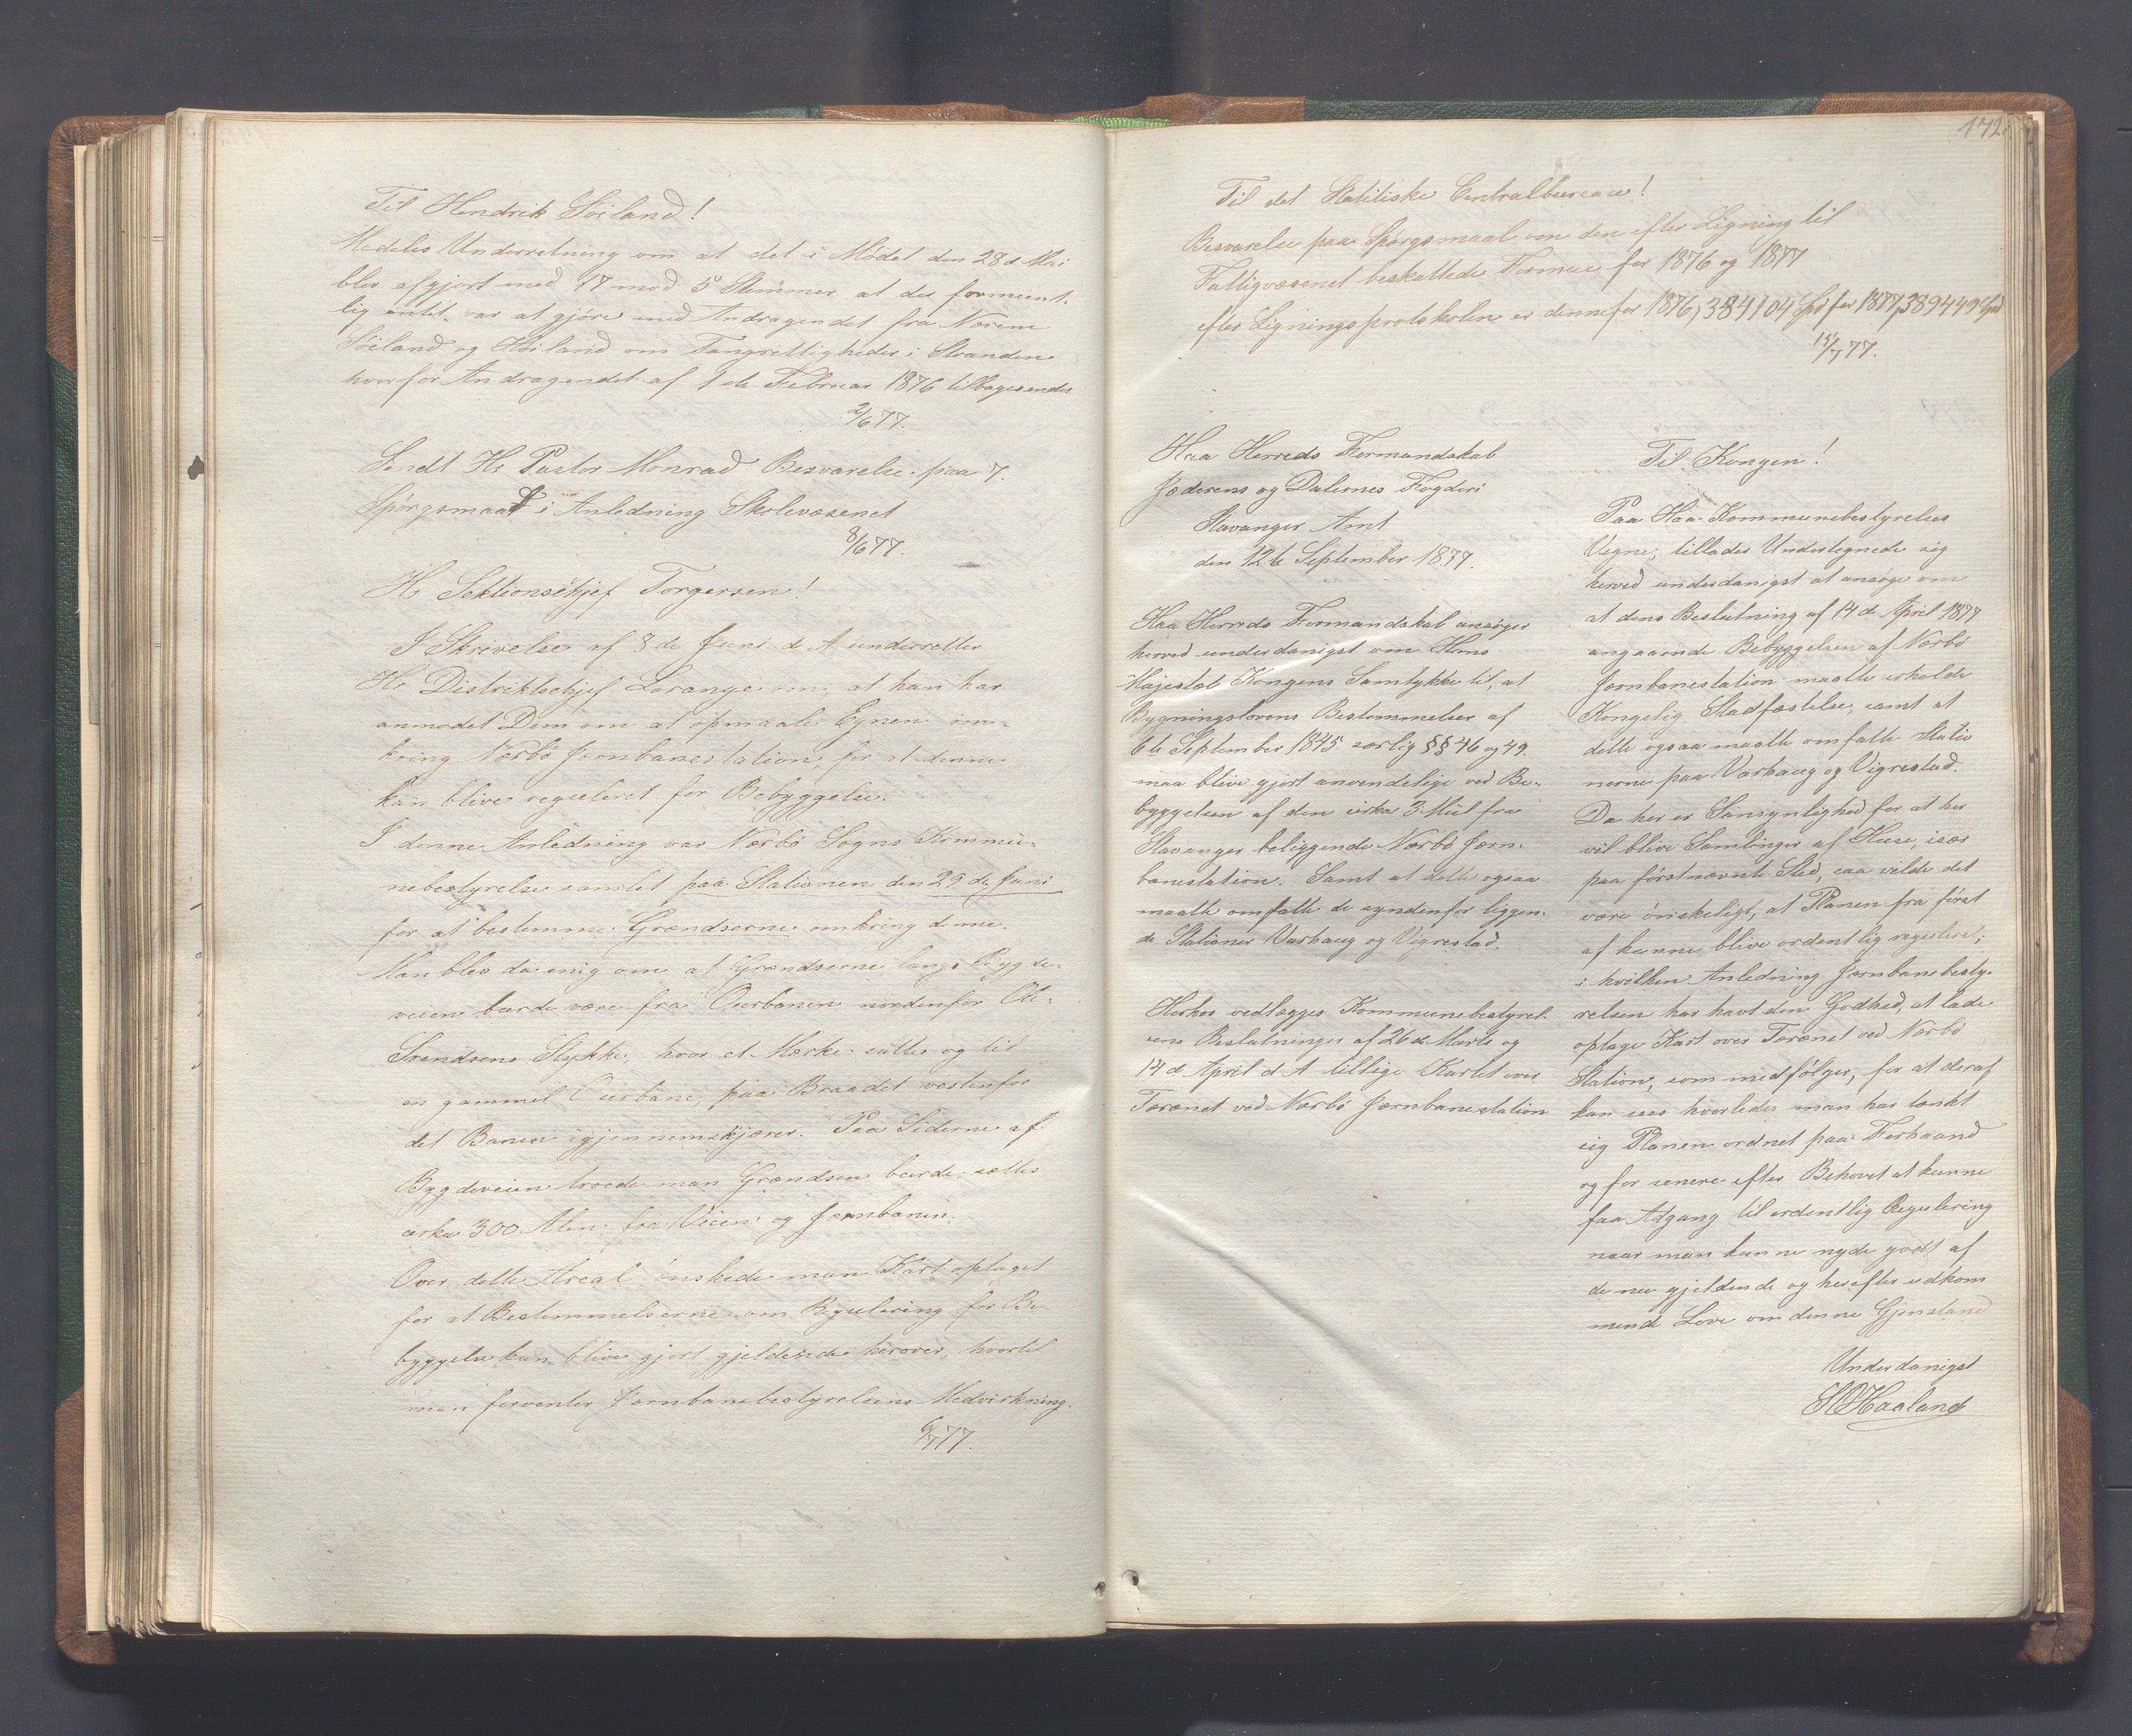 Til Hendrik Söiland!
Meddeles Underretning om at det i Mödet den 28de Mai
blev afgjort med 17 mod 5 Stemmer at der formeent-
lig intet var at gjöre med Andragendet fra Narem
Söiland og Höiland om Tangrettigheder i Stranden
hvorfor Andragendet af 1ste Februar 1876 tilbagesendes
2/6 77.
Sendt Hr Pastor Monrad Besvarelse paa 7.
Spörgsmaal i Anledning Skolevæsenet
8/6 77.
Hr Sektionschef Torgersen!
I Skrivelse af 8de Juni d A underretter
Hr Distriktschef Lorange om, at han har
anmodet Dem om at opmaale Egnen om-
kring Nærbö Jernbanestation for at denne
kan blive reguleret for Bebyggelse.
I denne Anledning var Nærbö Sogns Kommu-
nebestyrelse samlet paa Stationen den 29de Juni
for at bestemme Grændserne omkring denne.
Man blev da enig om at Grændserne langs Bygde-
veien burde være fra Overbanen nordenfor Ol-
Svendsens Stykke, hvor et Mærke sattes og til
en gammel Overbane, paa Braadet vestenfor
det Banen igjennemskjærer. Paa Siderne af
Bygdeveien troede man Grændsen burde sættes
cirka 300 Alen fra Veien og Jernbanen.
Over dette Areal önskede man Kart optaget
for at Bestemmelserne om Regulering for Be-
byggelse kan blive gjort gjeldende herover, hvortil
man forventer Jernbanebestyrelsens Medvirkning.
6/7 77.
172
Til det Statitiske Centralbureau!
Besvarelse paa Spörgsmaal om den efter Ligning til
Fattigvæsenet beskattede Formue for 1876 og 1877
efter Ligningsprotokolen er denne for 1876, 384104 Spd for 1877, 389449 Spd
15/7 77.
Haa Herreds Formandskab
Jæderens og Dalernes Fogderi
Stavanger Amt
den 12te September 1877.
Haa Herreds Formandskab ansöger
herved underdanigst om Hans
Majestæt Kongens Samtykke til, at
Bygningslovens Bestemmelser af
6te September 1845 særlig §§ 46 og 49.
maa blive gjort anvendelige ved Be-
byggelsen af den cirka 3 Miil fra
Stavanger beliggende Nærbö Jern-
banestation. Samt at dette ogsaa
maatte omfatte de syndenfor liggen-
de Stationer Varhaug og Vigrestad.
Herhos vedlægges Kommunebestyrel-
sens Beslutninger af 26de Marts og
14de April d A tillige Kartet over
Terænet ved Nærbö Jernbanestation
Til Kongen!
Paa Haa Kommunebestyrelses
Vegne, tillader Undertegnede sig
herved underdanigst at ansöge om
at dens Beslutning af 14de April 1877
angaaende Bebyggelsen af Nærbö
Jernbanestation maatte erholde
Kongelig Stadfæstelse, samt at
dette ogsaa maatte omfatte Statio
nerne paa Varhaug og Vigrestad.
Da her er Sansynlighed for at her
vil blive Samlinger af Huse, især
paa förstnævnte Sted, saa vilde det
være önskeligt, at Planen fra först
af kunne blive ordentlig reguleret;
i hvilken Anledning Jernbanebesty-
relsen har havt den Godhed, at lade
optage Kart over Terænet ved Nærbö
Station, som medfölger, for at deraf
kan sees hvorledes man har tænkt
sig Planen ordnet paa Forhaand
og for senere efter Behovet at kunne
faa Adgang til ordentlig Regulering
naar man kunne nyde godt af
de nu gjeldende og herefter udkom
mende Love om denne Gjenstand
Underdanigst
Haaland